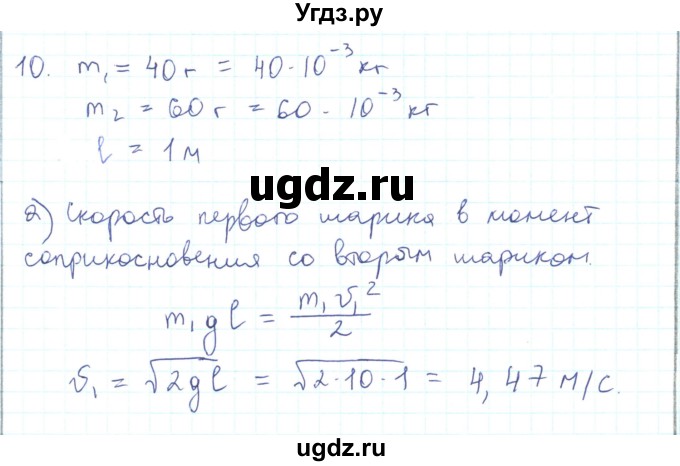 Угдз.ру
10. m₁ = 40 г = 40·10⁻³ кг
m₂ = 60 г = 60·10⁻³ кг
l = 1 м
ugdz.ru
a) Скорость первого шарика в момент
соприкосновения со вторым шариком.
m₁gl = m₁υ₁²/2
υ₁ = √2gl = √2·10·1 = 4,47 м/с.
ugdz.ru
ugdz.ru